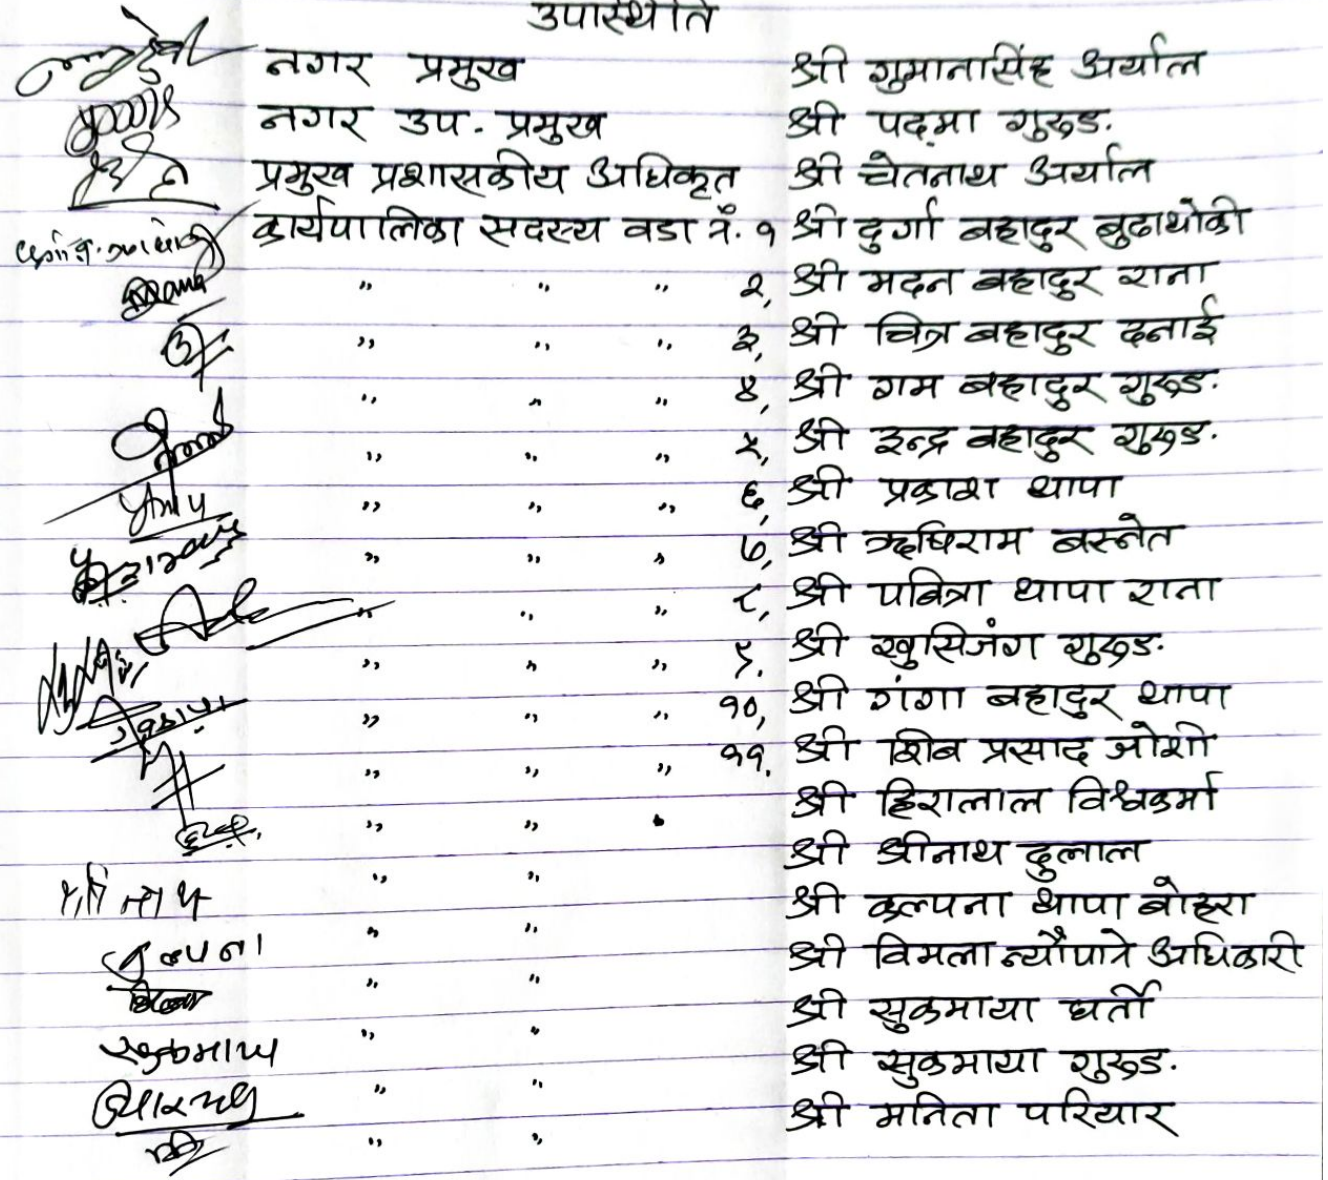 उपास्थीति
नगर प्रमुख श्री गुमानसिंह अर्याल
नगर उप. प्रमुख श्री पद्मा गुरुङ.
प्रमुख प्रशासकीय अधिकृत श्री चेतनाथ अर्याल
कार्यपालिका सदस्य वडा नं. १ श्री दुर्गा बहादुर बुढाथोकी
" " " २, श्री मदन बहादुर राना
" " " ३, श्री चित्र बहादुर दनाई
" " " ४, श्री राम बहादुर गुरुङ.
" " " ५, श्री इन्द्र बहादुर गुरुङ.
" " " ६, श्री प्रकाश थापा
" " " ७, श्री ऋषिराम बस्नेत
" " " ८, श्री पबित्रा थापा राना
" " " ९. श्री खुसिजंग गुरुङ.
" " " १०, श्री गंगा बहादुर थापा
" " " ११. श्री शिब प्रसाद जोशी
" " श्री हिरालाल विश्वकर्मा
" " श्री श्रीनाथ दुलाल
कल्पना " " श्री कल्पना थापा बोहरा
" " श्री विमला न्यौपाने अधिकारी
सुकमाया " " श्री सुकमाया घर्ती
" " श्री सुकमाया गुरुङ.
" " श्री मनिता परियार